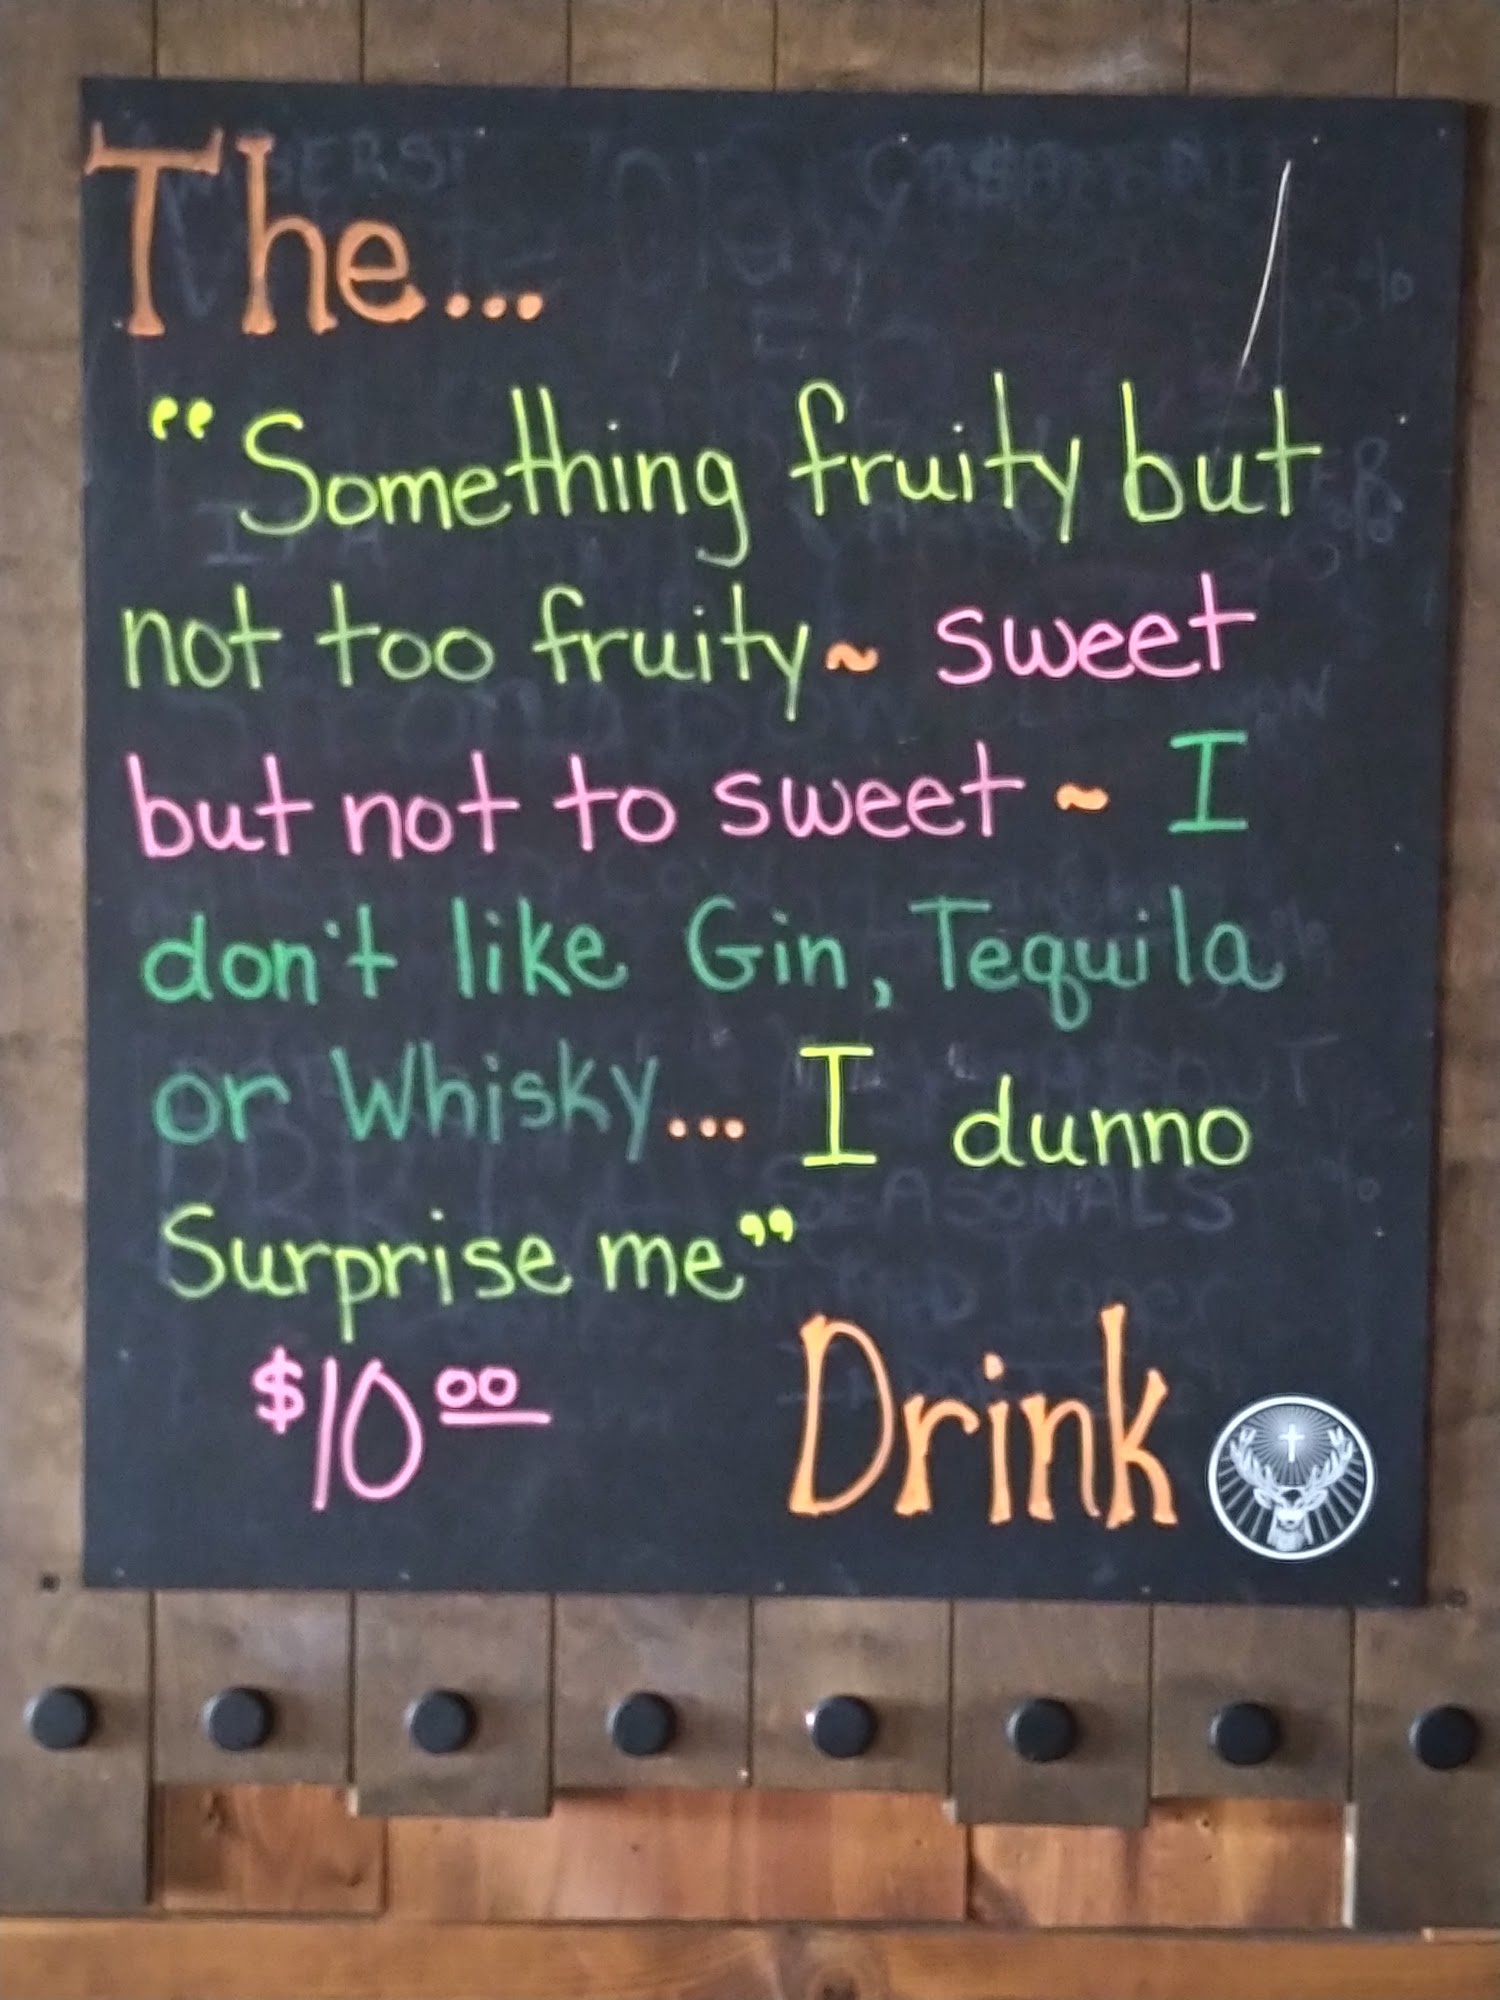 The...
“Something fruity but
not too fruity ~ sweet
but not to sweet ~ I
don't like Gin, Tequila
or Whisky... I dunno
Surprise me”
$10.00 Drink
SEASONALS